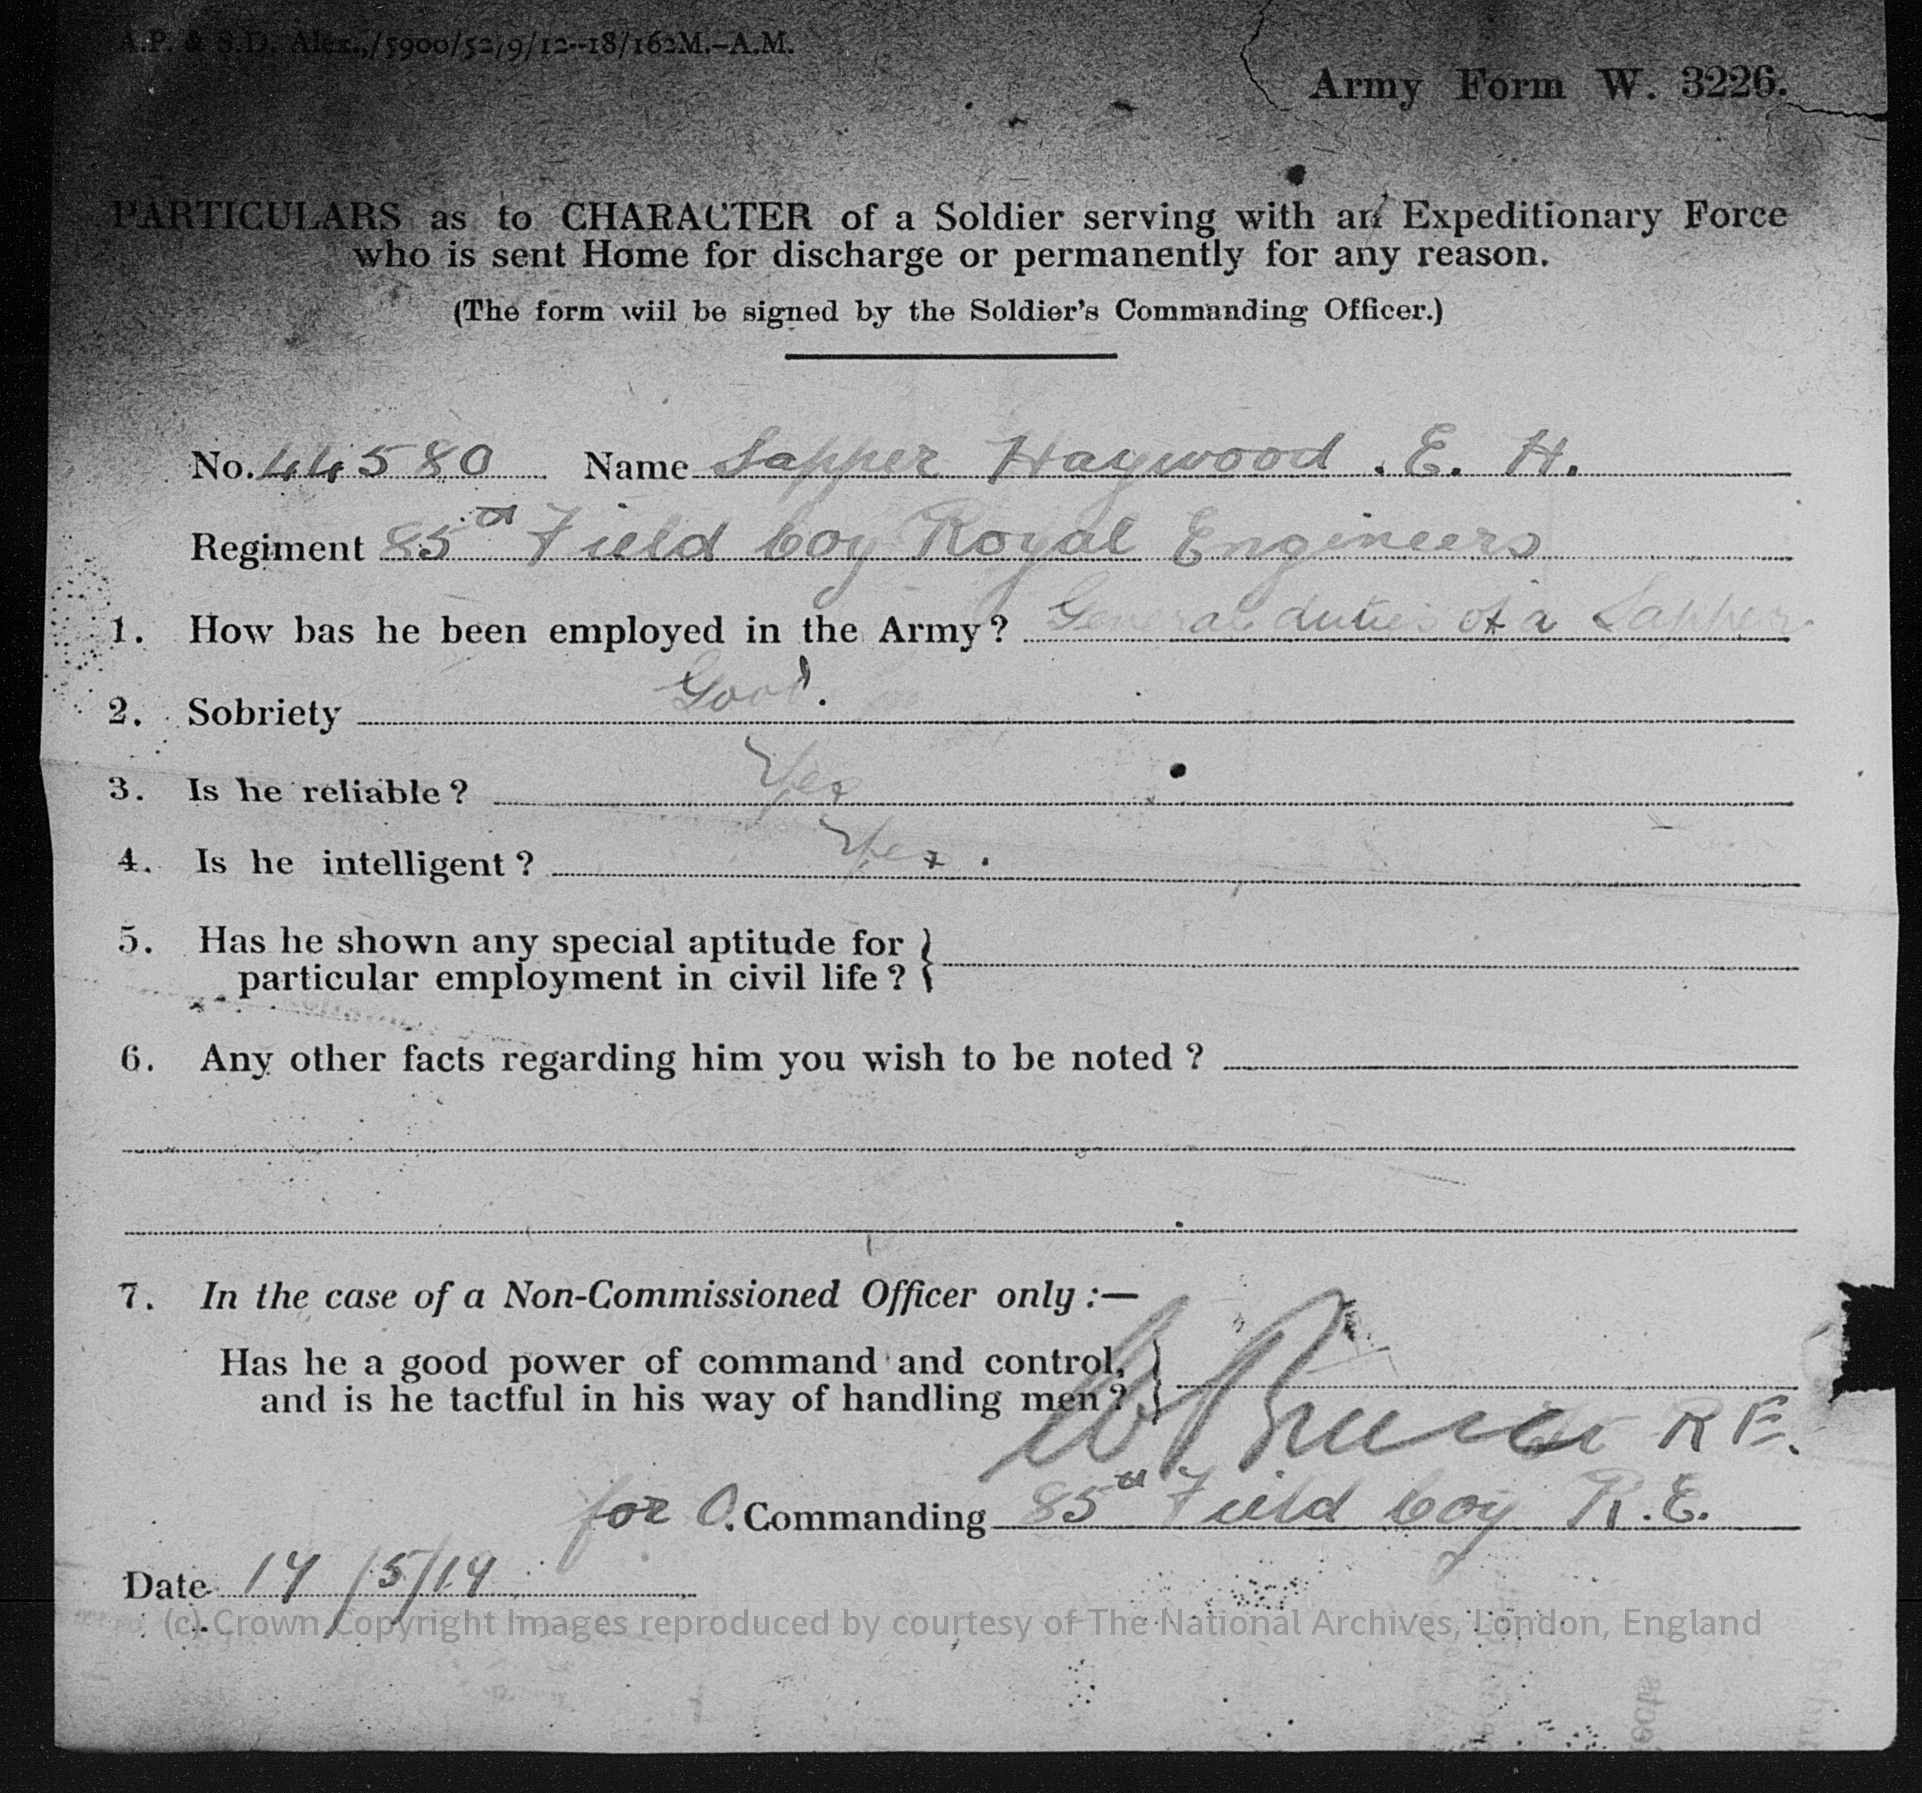 A.P. & S.D. Alex./5900/52/9/12--18/162M.–A.M.
Army Form W. 3226.
PARTICULARS as to CHARACTER of a Soldier serving with an Expeditionary Force
who is sent Home for discharge or permanently for any reason.
(The form wiil be signed by the Soldier's Commanding Officer.)
No. 44580 Name Sapper Haywood . E. H.
Regiment 85th Field Coy Royal Engineers
1. How bas he been employed in the Army? General duties of a Sapper
2. Sobriety Good.
3. Is he reliable? Yes
4. Is he intelligent? Yes.
5. Has he shown any special aptitude for
particular employment in civil life?
6. Any other facts regarding him you wish to be noted?
7. In the case of a Non-Commissioned Officer only :—
Has he a good power of command and control,
and is he tactful in his way of handling men?
R E.
for O. Commanding 85th Field Coy R.E.
Date 14/5/19
(c) Crown Copyright Images reproduced by courtesy of The National Archives, London, England